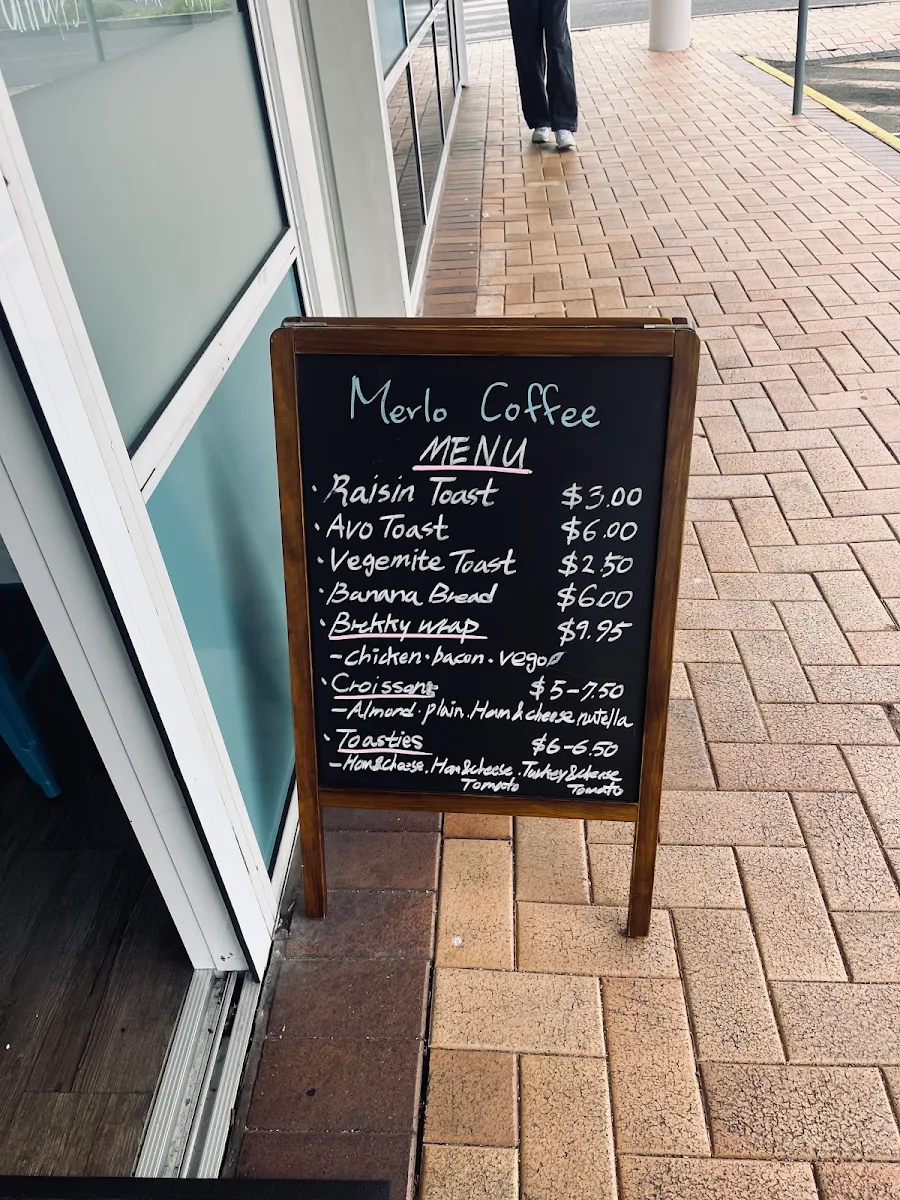 Merlo Coffee
MENU
· Raisin Toast $3.00
· Avo Toast $6.00
· Vegemite Toast $2.50
· Banana Bread $6.00
· Brekky wrap $9.95
- chicken · bacon · vego
· Croissant $5-7.50
- Almond · plain · Ham & cheese nutella
· Toasties $6-6.50
- Ham & cheese · Ham & cheese Tomato · Turkey & cheese Tomato